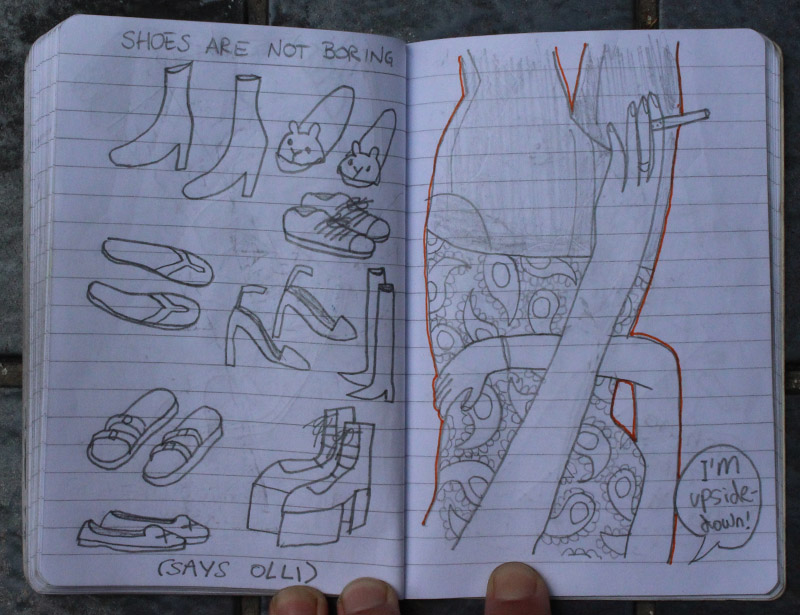 SHOES ARE NOT BORING
(SAYS OLLI)
I'm
upside-
down!